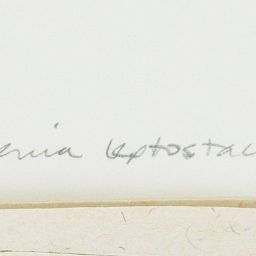 ernia leptostac